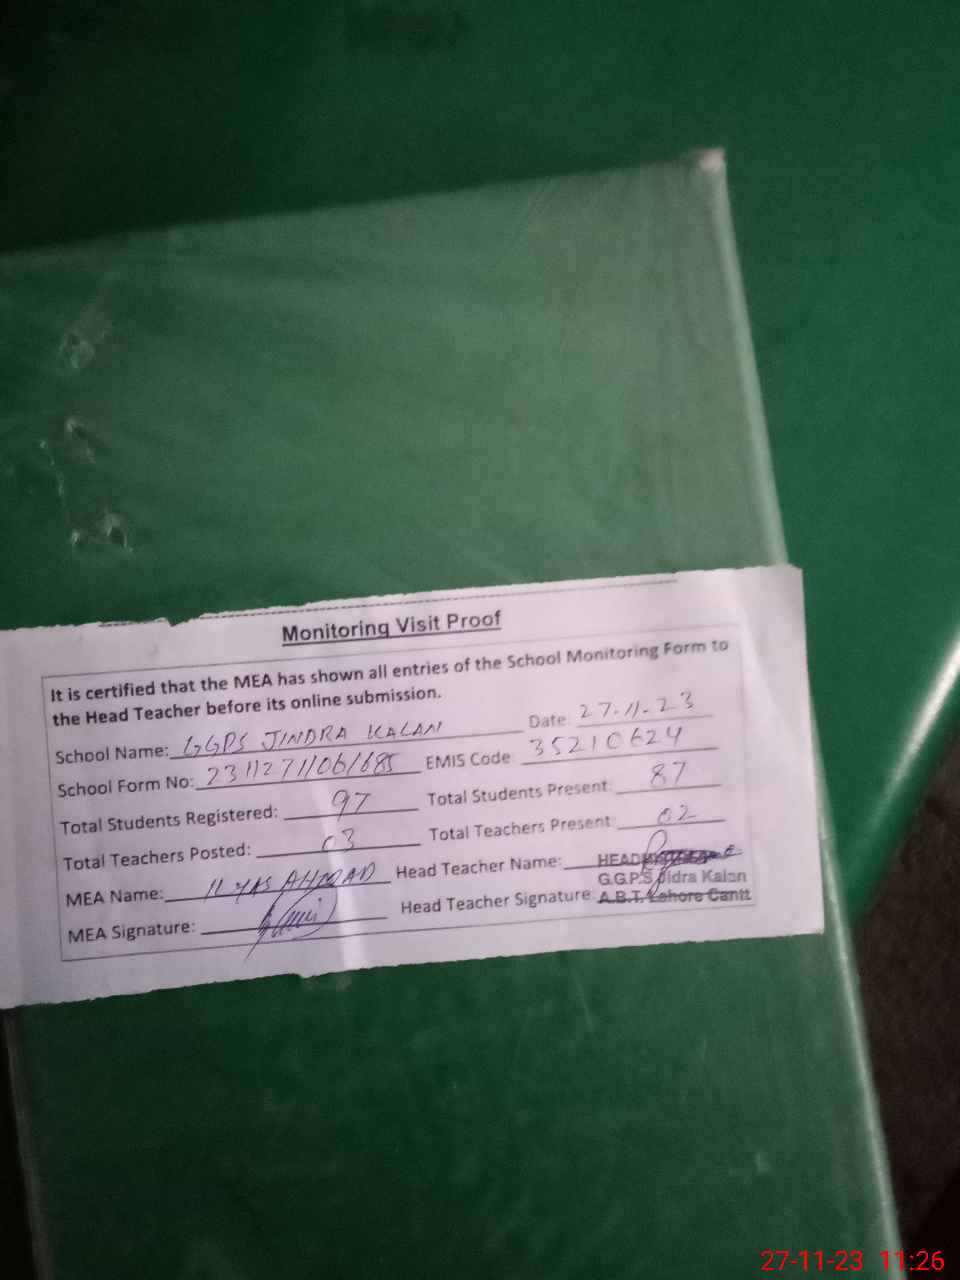 Monitoring Visit Proof
It is certified that the MEA has shown all entries of the School Monitoring Form to
the Head Teacher before its online submission.
School Name: GGPS JINDRA KALAN Date: 27.11.23
School Form No: 23112711061685 EMIS Code: 35210624
Total Students Registered: 97 Total Students Present: 87
Total Teachers Posted: 03 Total Teachers Present: 02
MEA Name: ILYAS AHMAD Head Teacher Name:
G.G.P.S Jidra Kalan
MEA Signature: Head Teacher Signature: A.B.T. Lahore Cantt
27-11-23 11:26